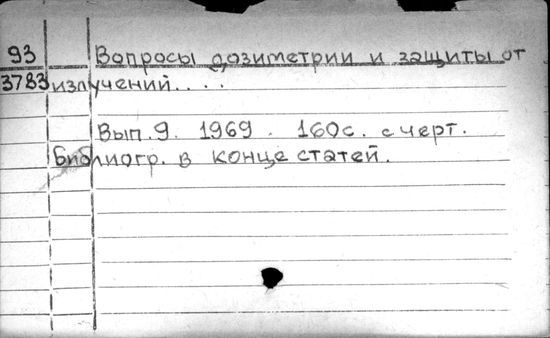 93 Вопросы дозиметрии и защиты от
3783 излучений....
Вып. 9. 1969. 160с. с черт.
Библиогр. в конце статей.